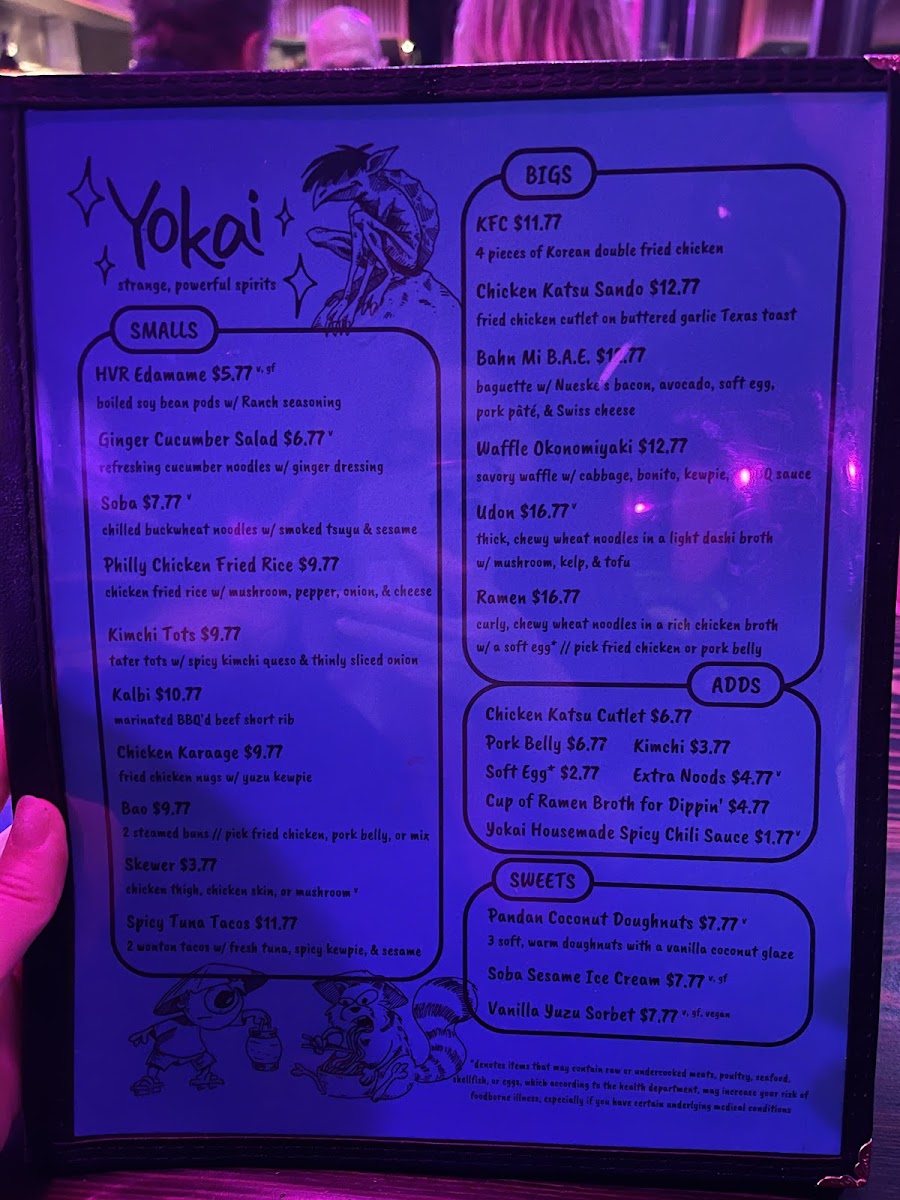 Yokai
strange, powerful spirits
SMALLS
HVR Edamame $5.77 v, gf
boiled soy bean pods w/ Ranch seasoning
Ginger Cucumber Salad $6.77 v
refreshing cucumber noodles w/ ginger dressing
Soba $7.77 v
chilled buckwheat noodles w/ smoked tsuyu & sesame
Philly Chicken Fried Rice $9.77
chicken fried rice w/ mushroom, pepper, onion, & cheese
Kimchi Tots $9.77
tater tots w/ spicy kimchi queso & thinly sliced onion
Kalbi $10.77
marinated BBQ'd beef short rib
Chicken Karaage $9.77
fried chicken nugs w/ yuzu kewpie
Bao $9.77
2 steamed buns // pick fried chicken, pork belly, or mix
Skewer $3.77
chicken thigh, chicken skin, or mushroom v
Spicy Tuna Tacos $11.77
2 wonton tacos w/ fresh tuna, spicy kewpie, & sesame
BIGS
KFC $11.77
4 pieces of Korean double fried chicken
Chicken Katsu Sando $12.77
fried chicken cutlet on buttered garlic Texas toast
Bahn Mi B.A.E.
baguette w/ Nueske's bacon, avocado, soft egg,
pork pâté, & Swiss cheese
Waffle Okonomiyaki $12.77
savory waffle w/ cabbage, bonito, kewpie, sauce
Udon $16.77 v
thick, chewy wheat noodles in a light dashi broth
w/ mushroom, kelp, & tofu
Ramen $16.77
curly, chewy wheat noodles in a rich chicken broth
w/ a soft egg* // pick fried chicken or pork belly
ADDS
Chicken Katsu Cutlet $6.77
Pork Belly $6.77 Kimchi $3.77
Soft Egg* $2.77 Extra Noods $4.77 v
Cup of Ramen Broth for Dippin' $4.77
Yokai Housemade Spicy Chili Sauce $1.77 v
SWEETS
Pandan Coconut Doughnuts $7.77 v
3 soft, warm doughnuts with a vanilla coconut glaze
Soba Sesame Ice Cream $7.77 v, gf
Vanilla Yuzu Sorbet $7.77 v, gf, vegan
*denotes items that may contain raw or undercooked meats, poultry, seafood,
shellfish, or eggs, which according to the health department, may increase your risk of
foodborne illness, especially if you have certain underlying medical conditions